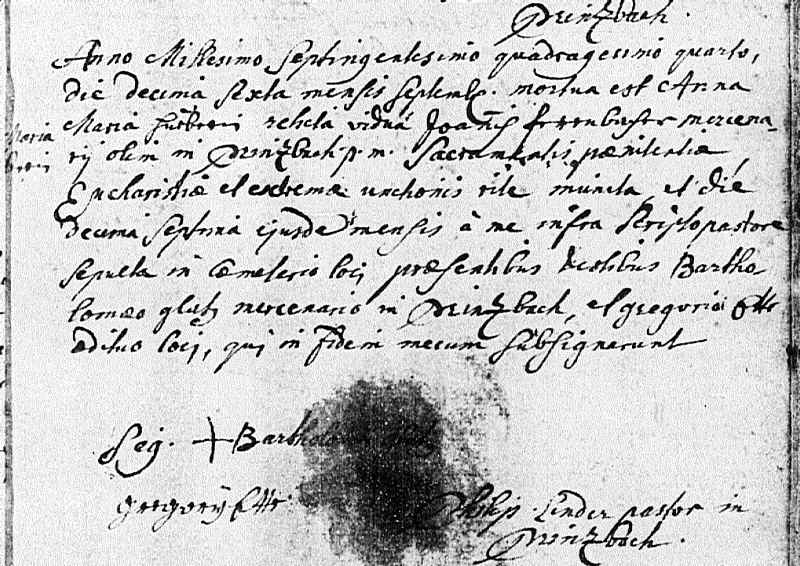 Prinzbach.
Anno Millesimo Septingentesimo quadragesimo quarto,
die decima sexta mensis septemb. mortua est Anna
Maria relicta vidua Joanis mercena-
Maria
rij olim in Prinzbach p. m. Sacramentalis pænitentiæ
Eucharistiæ et extremæ unctionis rite munita, et die
decima septima ejusde mensis à me infra scripto pastore
sepulta in Cæmeterio loci præsentibus testibus Bartho
lomæo glutz mercenario in Prinzbach, et gregorio Ette
ædituo loci, qui in fidem mecum subsignarunt
Sig. + Bartholomæi glutz
gregorij Ette
Philip. Linder pastor in
Prinzbach.